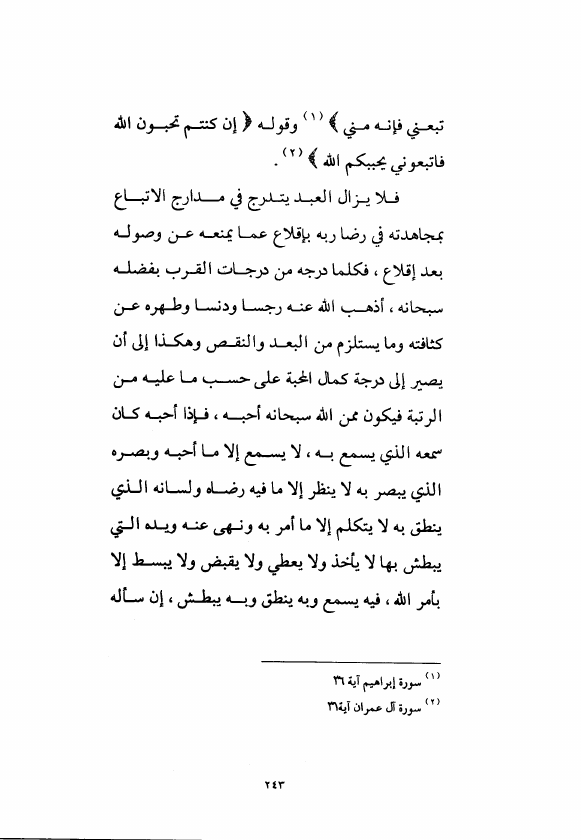 تبعني فإنه مني ﴾ (١) وقوله ﴿ إن كنتم تحبون الله
فاتبعوني يحببكم الله ﴾ (٢) .
فلا يزال العبد يتدرج في مدارج الاتباع
بمجاهدته في رضا ربه بإقلاع عما يمنعه عن وصوله
بعد إقلاع ، فكلما درجه من درجات القرب بفضله
سبحانه ، أذهب الله عنه رجسا ودنسا وطهره عن
كثافته وما يستلزم من البعد والنقص وهكذا إلى أن
يصير إلى درجة كمال المحبة على حسب ما عليه من
الرتبة فيكون ممن الله سبحانه أحبه ، فإذا أحبه كان
سمعه الذي يسمع به ، لا يسمع إلا ما أحبه وبصره
الذي يبصر به لا ينظر إلا ما فيه رضاه ولسانه الذي
ينطق به لا يتكلم إلا ما أمر به ونهى عنه ويده التي
يبطش بها لا يأخذ ولا يعطي ولا يقبض ولا يبسط إلا
بأمر الله ، فبه يسمع وبه ينطق وبه يبطش ، إن سأله
(١) سورة إبراهيم آية ٣٦
(٢) سورة آل عمران آية٣١
٢٤٣